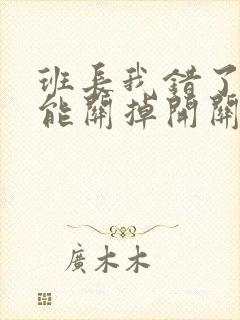 班長我錯了
能關掉開關
廣木木